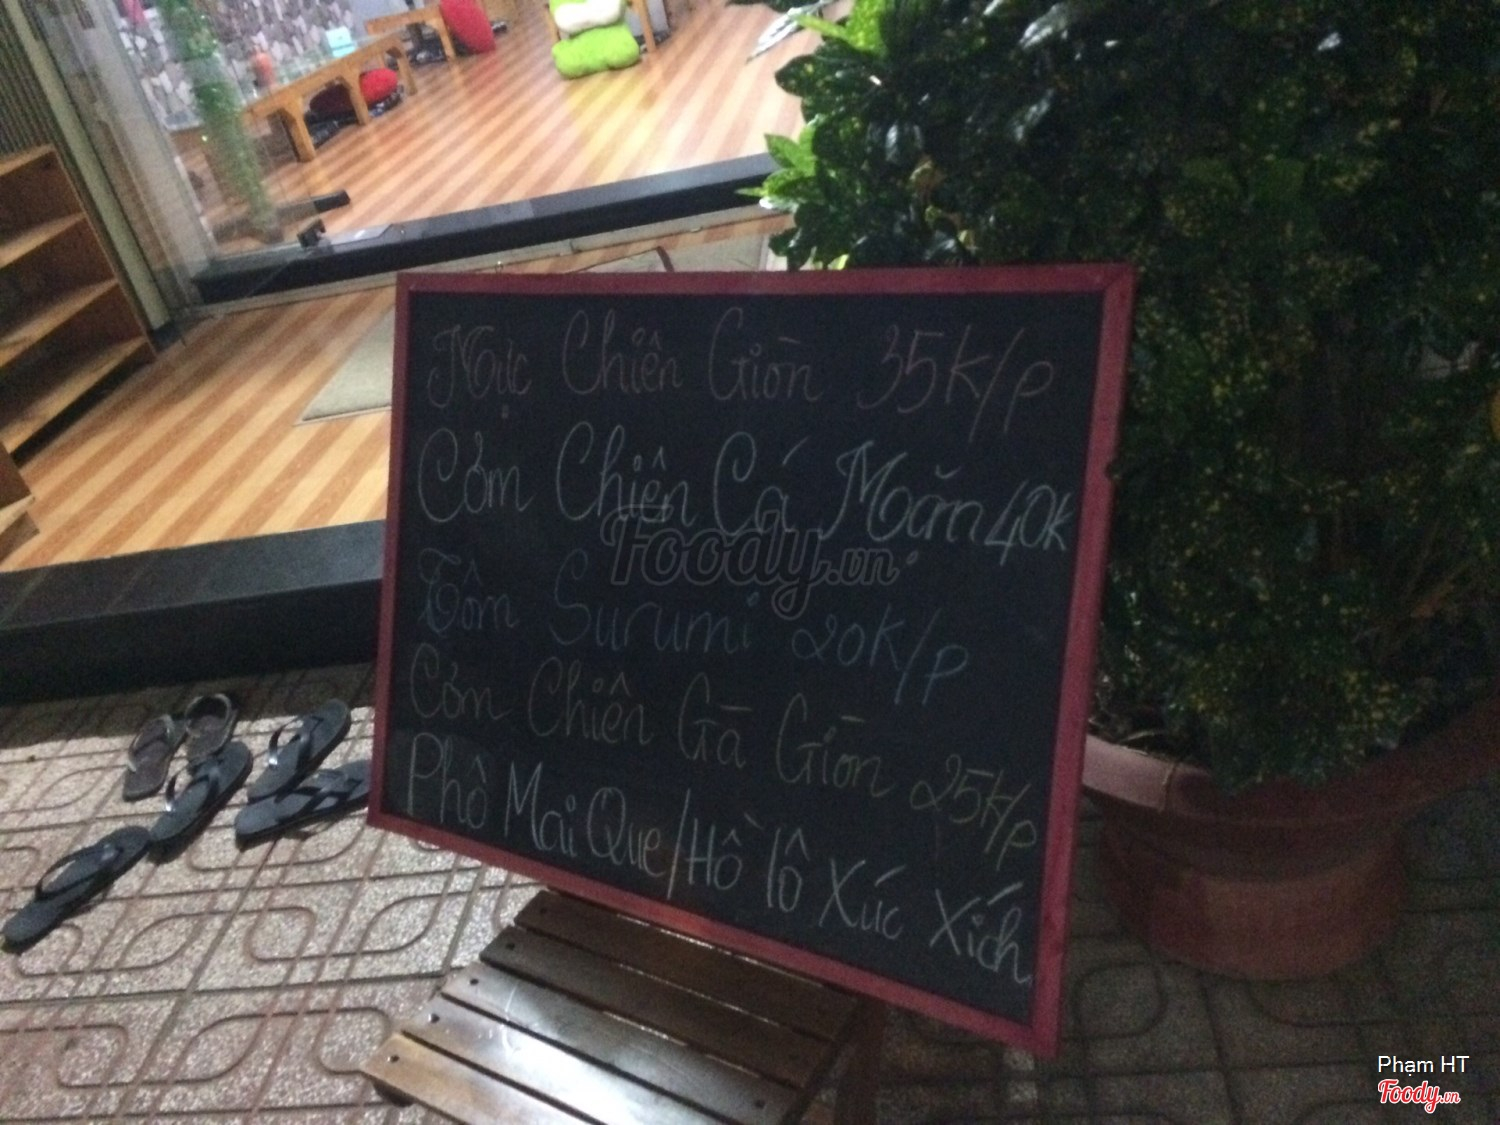 Mực Chiên Giòn 35k/p
Cơm Chiên Cá Mặn 40k
Tôm Surumi 20k/p
Cơm Chiên Gà Giòn 25k/p
Phô Mai Que/Hồ lô Xúc Xích
Foody.vn
Phạm HT
Foody.vn